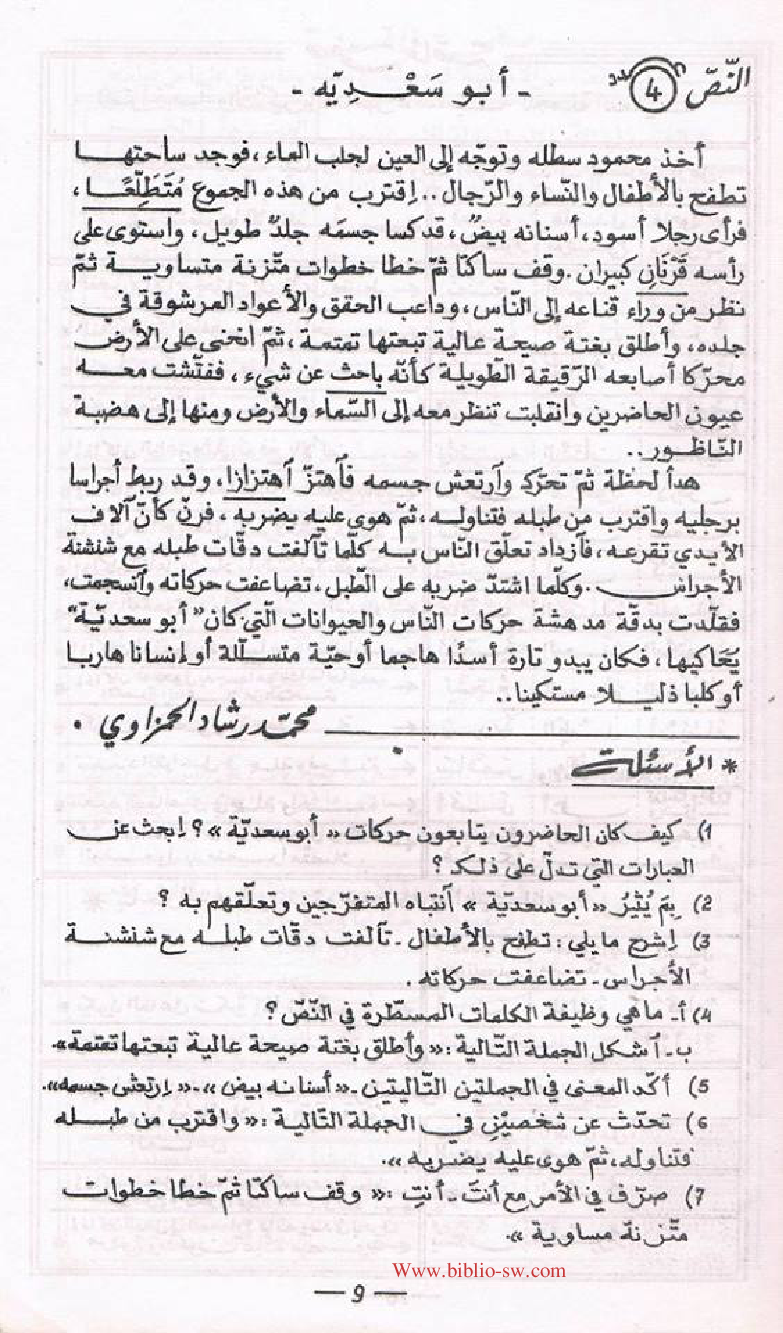 النّصّ 4 عدد
- أبو سَعْدِيّه -
أخذ محمود سطله وتوجّه إلى العين لجلب الماء، فوجد ساحتها
تطفح بالأطفال والنّساء والرّجال .. اِقترب من هذه الجموع مُتَطَلِّعًا،
فرأى رجلا أسود، أسنانه بيضٌ، قد كسا جسمَه جلدٌ طويل، واستوى على
رأسه قَرْنَانِ كبيران. وقف ساكنًا ثمّ خطا خطوات متّزنة متساوية ثمّ
نظر من وراء قناعه إلى النّاس، وداعب الحقق والأعواد المرشوقة في
جلده، وأطلق بغتة صيحة عالية تبعتها تمتمة، ثمّ انحنى على الأرض
محرّكا أصابعه الرّقيقة الطّويلة كأنّه باحث عن شيء، ففتّشت معه
عيون الحاضرين وانقلبت تنظر معه إلى السّماء والأرض ومنها إلى هضبة
النّاظور..
هدأ لحظة ثمّ تحرّك وآرتعش جسمه فآهتزّ آهتزازا، وقد ربط أجراسا
برجليه واقترب من طبله فتناوله، ثمّ هوى عليه يضربه، فرنّ كأنّ آلاف
الأيدي تقرعه، فآزداد تعلّق النّاس به كلّما تآلفت دقّات طبله مع شنشنة
الأجراس. وكلّما اشتدّ ضربه على الطّبل، تضاعفت حركاته وآنسجمت،
فقلّدت بدقّة مدهشة حركات النّاس والحيوانات الّتي كان "أبو سعديّة"
يُحَاكيها، فكان يبدو تارة أسدًا هاجما أوحيّة متسلّلة أو إنسانا هاربا
أوكلبا ذليلا مستكينا..
محمّد رشاد الحمزاوي.
* الأسئلة
1) كيف كان الحاضرون يتابعون حركات «أبو سعديّة»؟ اِبحث عن
العبارات التي تدلّ على ذلك؟
2) بِمَ يُثِيرُ «أبو سعديّة» آنتباه المتفرّجين وتعلّقهم به؟
3) اِشرح ما يلي: تطفح بالأطفال - تآلفت دقّات طبله مع شنشنة
الأجراس - تضاعفت حركاته.
4) أ- ما هي وظيفة الكلمات المسطّرة في النّصّ؟
ب- آشكل الجملة التّالية: «وأطلق بغتة صيحة عالية تبعتها تمتمة».
5) أكّد المعنى في الجملتين التّاليتين - «أسنانه بيض» - «اِرتعش جسمه».
6) تحدّث عن شخصيْنِ في الجملة التّالية: «واقترب من طبله
فتناوله، ثمّ هوى عليه يضربه».
7) صرّف في الأمر مع أنتَ - أنتِ: «وقف ساكنًا ثمّ خطا خطوات
متّزنة مساوية».
Www.biblio-sw.com
— 9 —